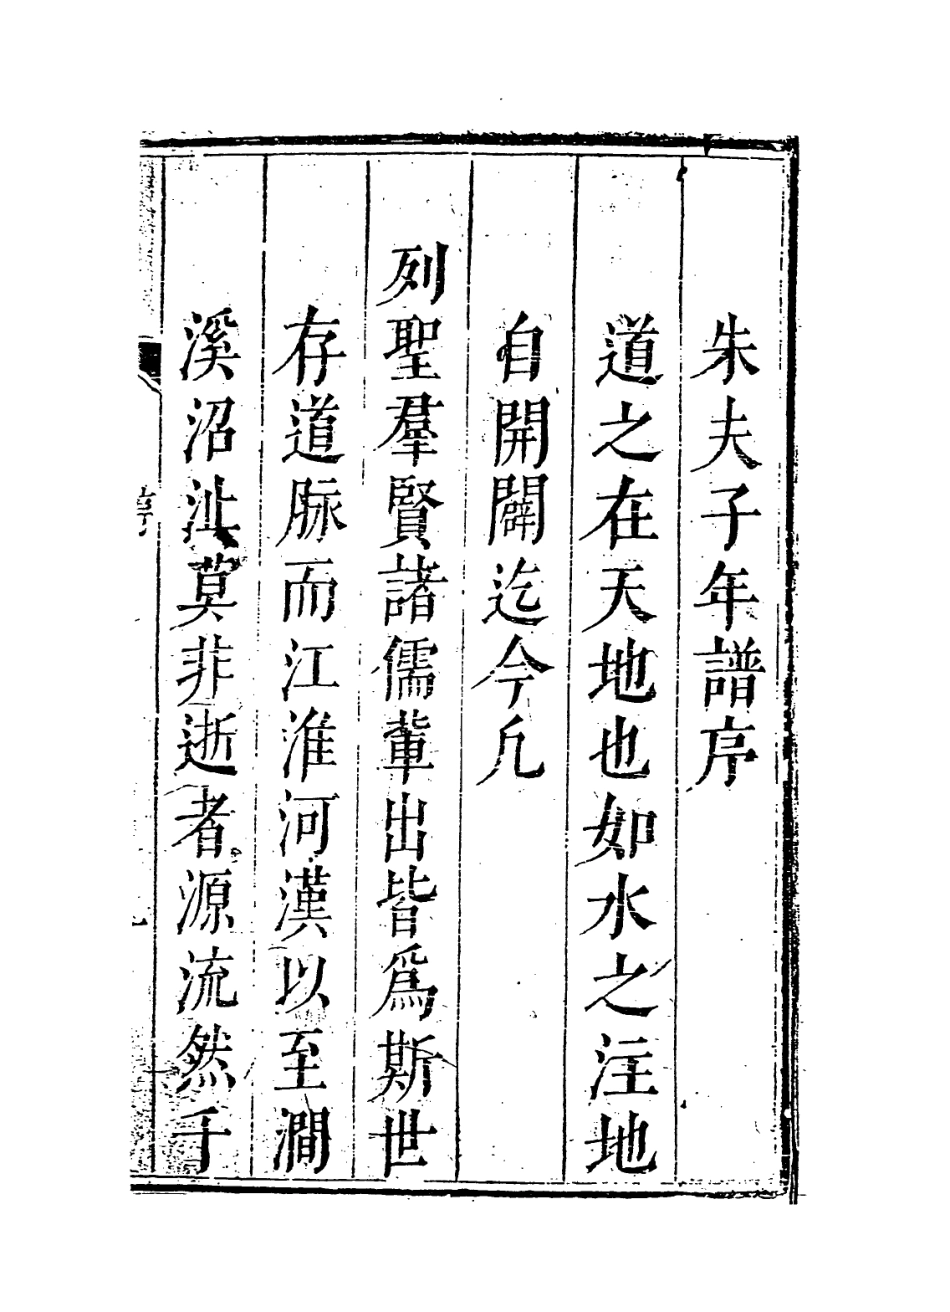 朱夫子年譜序
道之在天地也如水之注地
自開闢迄今凡
列聖羣賢諸儒輩出皆爲斯世
存道脈而江淮河漢以至澗
溪沼沚莫非逝者源流然于
序
一